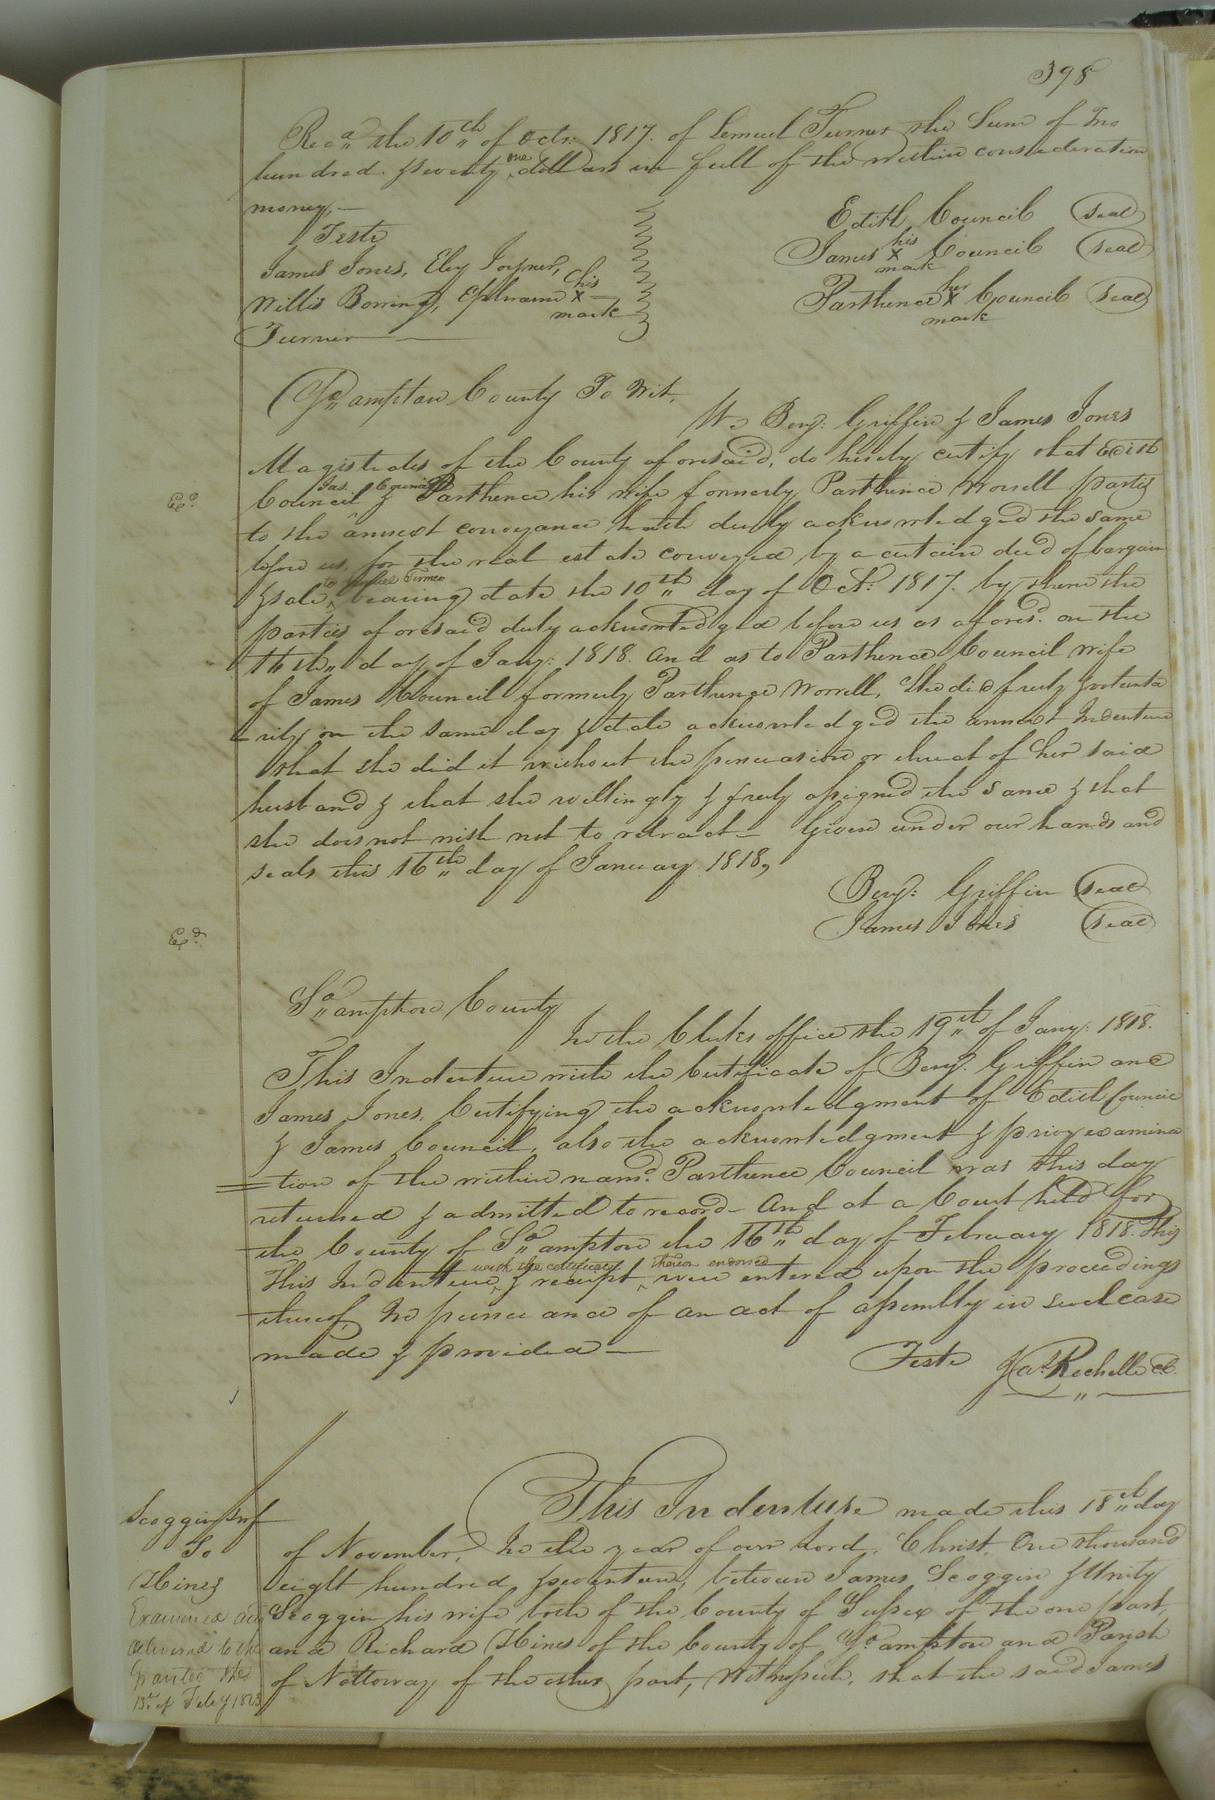 398
Recd. the 10th of Octr. 1817. of Lemuel Turner the Sum of Two
hundred & seventy one dollars in full of the within consideration
money,—
Teste
James Jones, Eley Joyner,
Willis Bowing, Ephraim his X mark
Turner
Edith Council (seal)
James his X mark Council (seal)
Parthenca her X mark Council (seal)
So.ampton County To Wit,
We Benj: Griffin & James Jones
Magistrates of the County aforesaid, do hereby certify that Edith
Council & Jas. Council Parthence his wife formerly Parthence Worrell partys
to the annext conveyance hath duly acknowledged the same
before us, for the real estate conveyed by a certain deed of bargain
& sale, to Turner bearing date the 10th day of Oct: 1817. by them the
parties aforesaid duly acknowledged before us as afores.d on the
16th day of Jany: 1818. And as to Parthence Council wife
of James Council formerly Parthence Worrell, She did freely & volunta
-rily on the same day & date acknowledged the annext Indenture
that she did it without the persuasion or threat of her said
husband & that she willingly & freely assigned the same & that
she does not wish not to retract— Given under our hands and
seals this 16th day of January 1818,
Benj: Griffin (seal)
James Jones (seal)
Ed.
Ed.
So.ampton County
In the Clerks office the 19th of Jany: 1818.
This Indenture with the Certificate of Benj. Griffin and
James Jones, Certifying the acknowledgment of Edith Council
& James Council, also the acknowledgment & privy examina
=tion of the within nam.d Parthence Council was this day
returned & admitted to record— And at a Court held for
the County of So.ampton the 16th day of February 1818. This
This Indenture, with the certificate & receipt thereon endorsed were entered upon the proceedings
thereof, In pursuance of an act of assembly in such case
made & provided—
Teste Jas. Rochelle CC.
Scoggin & wf
To
Hines
Examined and
delivered to the
Grantee the
13th of Feby 1823
This Indenture made this 18th day
of November, In the year of our Lord, Christ. One thousand
eight hundred & seventeen, between James Scoggin & Unity
Scoggin his wife both of the County of Sussex of the one part,
and Richard Hines of the County of So.ampton and Parish
of Nottoway of the other part, Witnesseth, that the said James